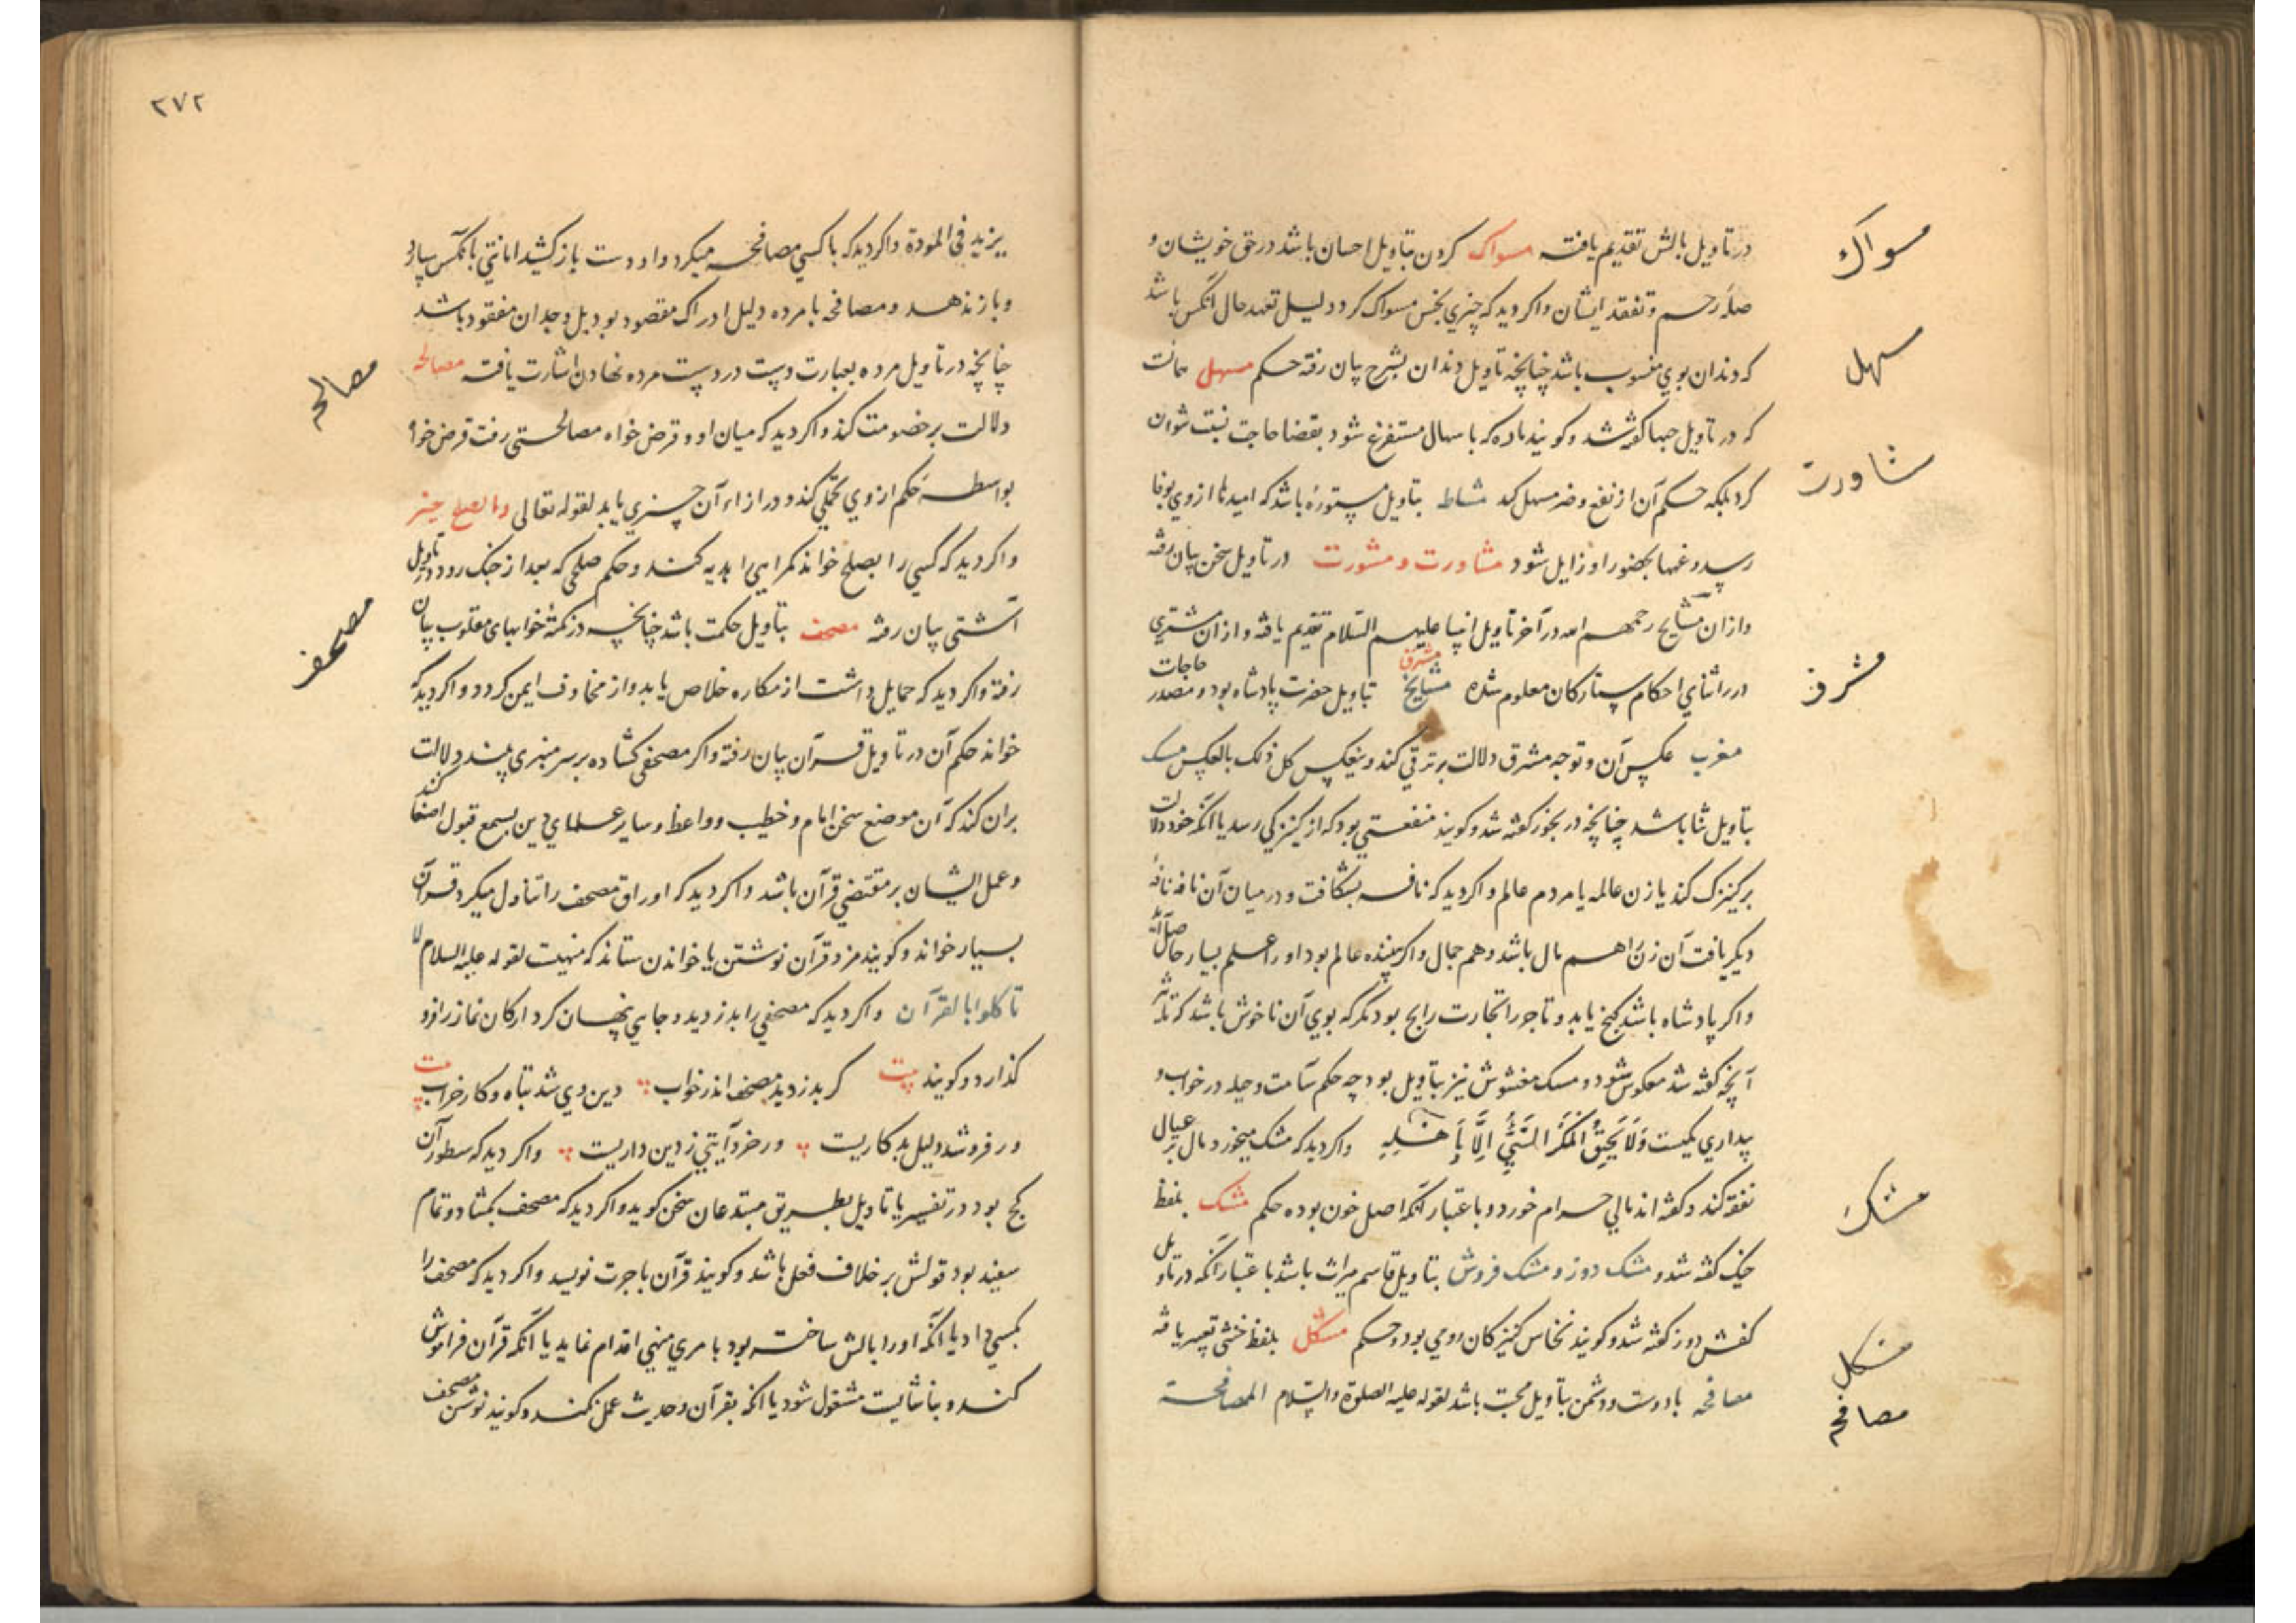 در تاویل بالش تقدیم یافته مسواک کردن بتاویل احسان باشد در حق خویشان و
مسواک
صله رحم و تفقد ایشان واکر دید که چیزی نجس مسواک کرد دلیل تعهد حال انکس باشد
که دندان بوی منسوب باشد چنانچه تاویل دندان بشرح بیان رفته حکم مسهل همانست
سهل
که در تاویل حبها کفته شد وکویند ماده که باسهال مستفرغ شود بقضا حاجت نسبت توان
کرد بلکه حکم آن از نفع و ضر مسهل کند مشاطه بتاویل مستوره باشد که امیدها از وی بوفا
شاورت
رسد و غمها بحضور او زایل شود مشاورت و مشورت در تاویل سخن بیان رفته
وازان مشایخ رحمهم الله در آخر تاویل انبیا علیهم السلام تقدیم یافته و ازان مشتری
در اثنای احکام ستارکان معلوم شده مشایخ مشرق بتاویل حضرت پادشاه بود و مصدر حاجات
مشرف
مغرب عکس آن و توجه مشرق دلالت بر ترقی کند وینعکس کل ذلک بالعکس مسک
بتاویل ثنا باشد چنانچه در بخور کفته شد وکویند منفعتی بود که از کنیزکی رسد یا آنکه خود دلالت
بر کنیزک کند یا زن عالمه یا مردم عالم واکر دید که نافه بشکافت و در میان آن نافه نافه
دیکر یافت آن زن را هم مال باشد و هم جمال واکر بیننده عالم بود او را علم بسیار حاصل آید
واکر پادشاه باشد کنج یابد و تاجر را تجارت رابح بود مکر که بوی آن ناخوش باشد که تاثیر
آنچه کفته شد معکوس شود و مسک مغشوش نیز بتاویل بود چه حکم سآمت و حیله در خواب و
بیداری یکیست وَلَا یَحِیقُ الْمَکْرُ السَّیِّئُ اِلَّا بِاَهْلِهِ واکر دید که مشک میخورد مال بر عیال
نفقه کند و کفته اند مالی حرام خورد و باعتبار آنکه اصل خون بوده حکم مشک بلفظ
مشک
خیک کفته شد و مشک دوز و مشک فروش بتاویل قاسم میراث باشد باعتبار آنکه در تاویل
کفش دوز کفته شد وکویند نخاس کنیزکان رومی بود و حکم مشکل بلفظ خنثی تعبیر یافته
مشکل
مصافحه با دوست و دشمن بتاویل محبت باشد لقوله علیه الصلوة والسلام المصافحة
مصافحه
٢٧٢
یزید فی المودة واکر دید که با کسی مصافحه میکرد و او دست باز کشید امانتی بآنکس سپارد
و باز ندهد و مصافحه با مرده دلیل ادراک مقصود بود بل وجدان مفقود باشد
چنانچه در تاویل مرده بعبارت دست در دست مرده نهادن اشارت یافته مصالحه
مصالحه
دلالت بر خصومت کند واکر دید که میان او و قرض خواه مصالحتی رفت قرض خواه
بواسطه حکم از وی تحملی کند و در ازاء آن چیزی یابد لقوله تعالی والصلح خیر
واکر دید که کسی را بصلح خواند کمراهی را بدیه کند و حکم صلحی که بعد از جنک رود در تاویل
آشتی بیان رفته مصحف بتاویل حکمت باشد چنانچه در کمته خوابهای مقلوب بیان
مصحف
رفته واکر دید که حمایل داشت از مکاره خلاص یابد واز مخاوف ایمن کردد واکر دید که
خواند حکم آن در تاویل قرآن بیان رفته واکر مصحفی کشاده بر سر منبری بیند دلالت
بران کند که آن موضع سخن امام و خطیب و واعظ و سایر علمای دین بسمع قبول اصغا کنند
و عمل ایشان بر مقتضی قرآن باشد واکر دید که اوراق مصحف را تناول میکرد قرآن
بسیار خواند وکویند مزد قرآن نوشتن یا خواندن ستاند که منهیست لقوله علیه السلام لا
تاکلوا بالقرآن واکر دید که مصحفی را بدزدید و جایی پنهان کرد ارکان نماز را فرو
کذارد وکویند بیت کر بدزدید مصحف اندر خواب دین وی شد تباه و کار خراب
ور فروشد دلیل بدکاریست ور خرد آیتی ز دین داریست واکر دید که سطور آن
کج بود در تفسیر یا تاویل بطریق مبتدعان سخن کوید واکر دید که مصحف بکشاد و تمام
سفید بود قولش بر خلاف فعل باشد وکویند قرآن باجرت نویسد واکر دید که مصحف را
بکسی داد یا آنکه او را بالش ساخته بود بامری منهی اقدام نماید یا آنکه قرآن فراموش
کند و بناشایست مشغول شود یا آنکه بقرآن و حدیث عمل نکند وکویند نوشتن مصحف